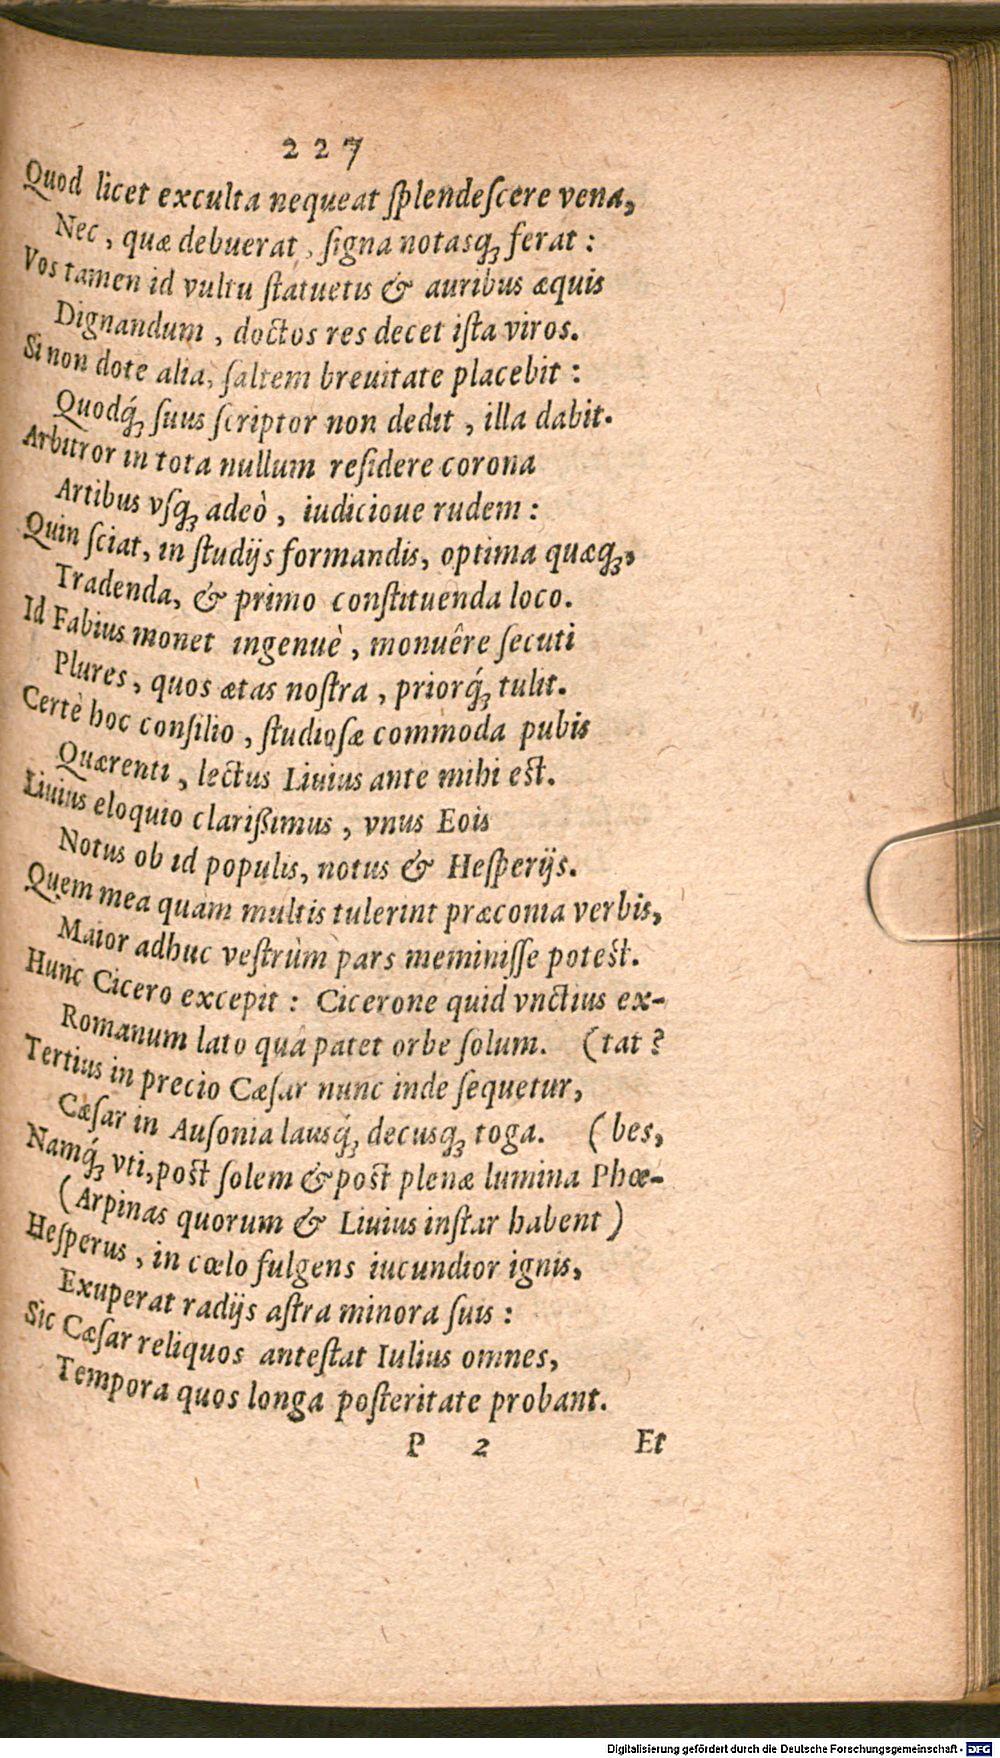 227
Quod licet exculta nequeat ſplendeſcere vena,
Nec, quæ debuerat, ſigna notasq́ꝫ ferat:
Vos tamen id vultu ſtatuetis & auribus æquis
Dignandum, doctos res decet iſta viros.
Si non dote alia, ſaltem breuitate placebit:
Quodq́ꝫ ſuus ſcriptor non dedit, illa dabit.
Arbitror in tota nullum reſidere corona
Artibus vſqꝫ adeò, iudicioue rudem:
Quin ſciat, in ſtudijs formandis, optima quæqꝫ,
Tradenda, & primo conſtituenda loco.
Id Fabius monet ingenuè, monuêre ſecuti
Plures, quos ætas noſtra, priorq́ꝫ tulit.
Certè hoc conſilio, ſtudioſæ commoda pubis
Quærenti, lectus Liuius ante mihi eſt.
Liuius eloquio clarißimus, vnus Eois
Notus ob id populis, notus & Heſperijs.
Quem mea quam multis tulerint præconia verbis,
Maior adhuc veſtrùm pars meminiſſe poteſt.
Hunc Cicero excepit: Cicerone quid vnctius ex-
Romanum lato quà patet orbe ſolum. (tat?
Tertius in precio Cæſar nunc inde ſequetur,
Cæſar in Auſonia lausq́ꝫ decusqꝫ toga. (bes,
Namq́ꝫ vti, poſt ſolem & poſt plenæ lumina Phœ-
(Arpinas quorum & Liuius inſtar habent)
Heſperus, in cœlo fulgens iucundior ignis,
Exuperat radijs aſtra minora ſuis:
Sic Cæſar reliquos anteſtat Iulius omnes,
Tempora quos longa poſteritate probant.
P 2 Et
Digitalisierung gefördert durch die Deutsche Forschungsgemeinschaft - DFG